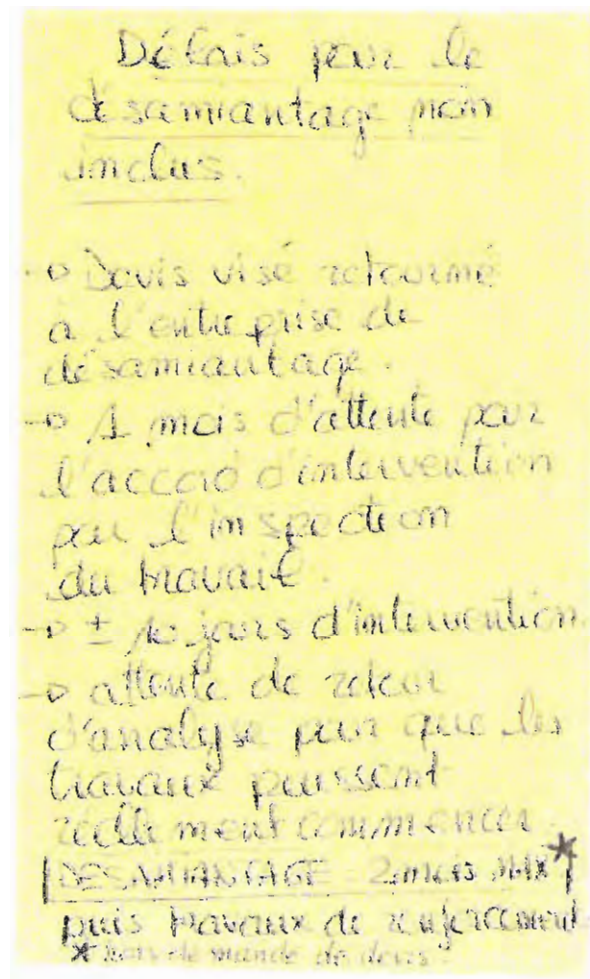 Délais pour le
désamiantage non
inclus.
-> Devis visé retourné
à l'entreprise de
désamiantage.
-> 1 mois d'attente pour
l'accord d'intervention
par l'inspection
du travail.
-> ± 10 jours d'intervention
-> attente de retour
d'analyse pour que les
travaux puissent
réellement commencer
DESAMIANTAGE 2 mois MAX*
puis travaux de renforcement
* hors demande de devis.